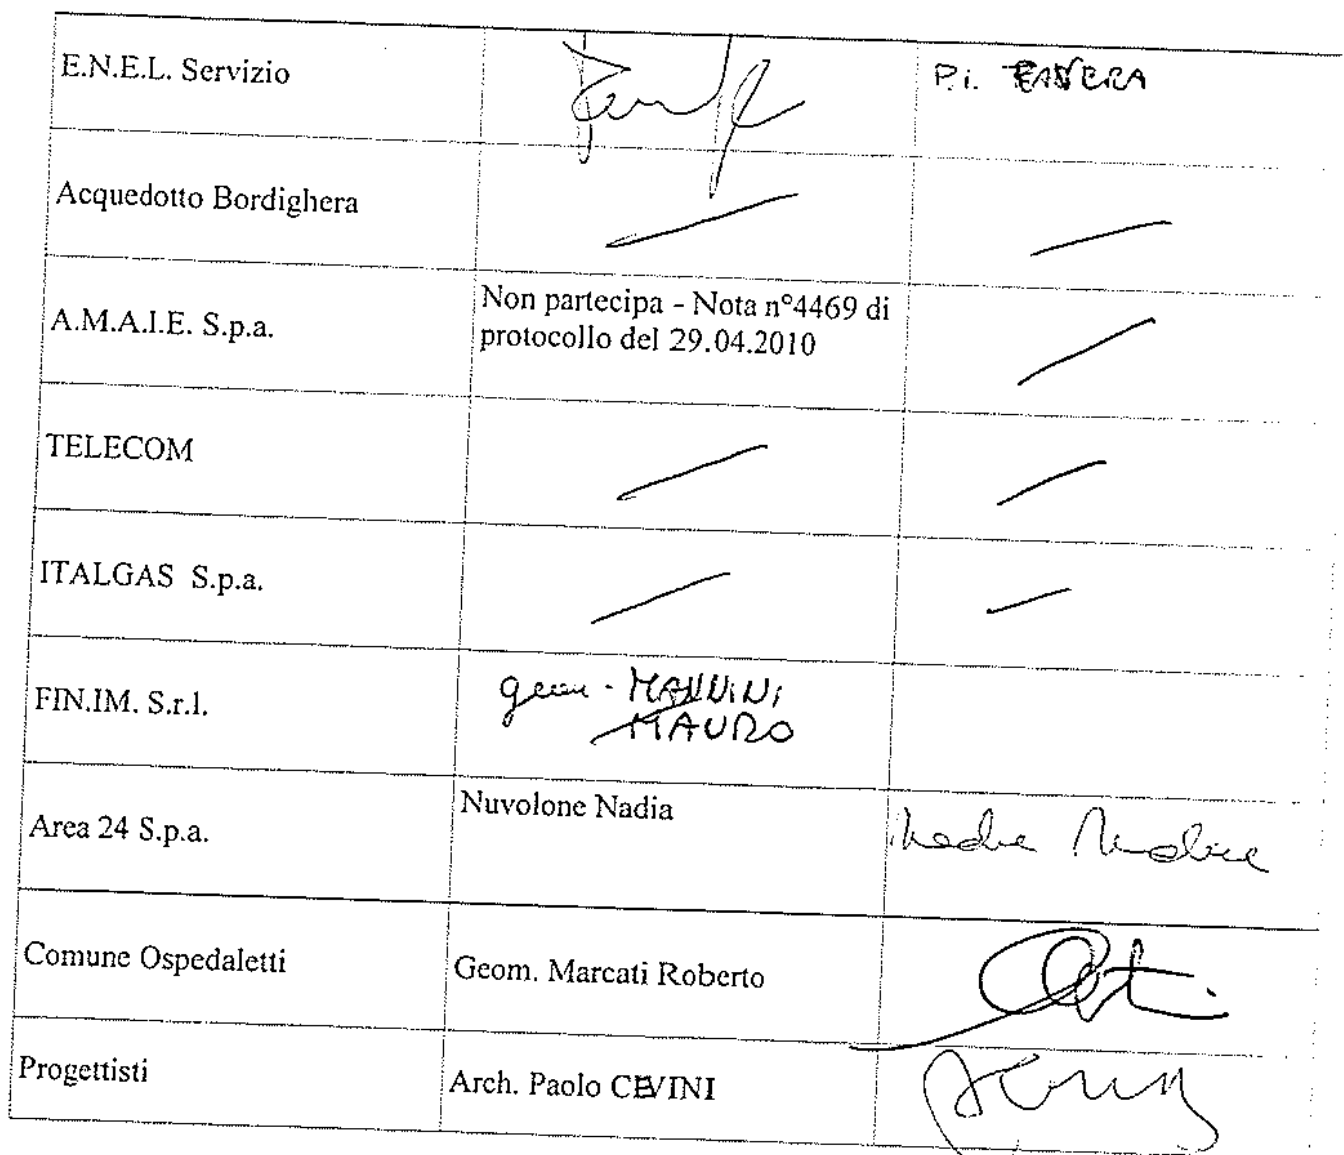 E.N.E.L. Servizio
P.i.
Acquedotto Bordighera
A.M.A.I.E. S.p.a.
Non partecipa - Nota n°4469 di
protocollo del 29.04.2010
TELECOM
ITALGAS S.p.a.
FIN.IM. S.r.l.
geom - MANNINI
MAURO
Area 24 S.p.a.
Nuvolone Nadia
Comune Ospedaletti
Geom. Marcati Roberto
Progettisti
Arch. Paolo CEVINI